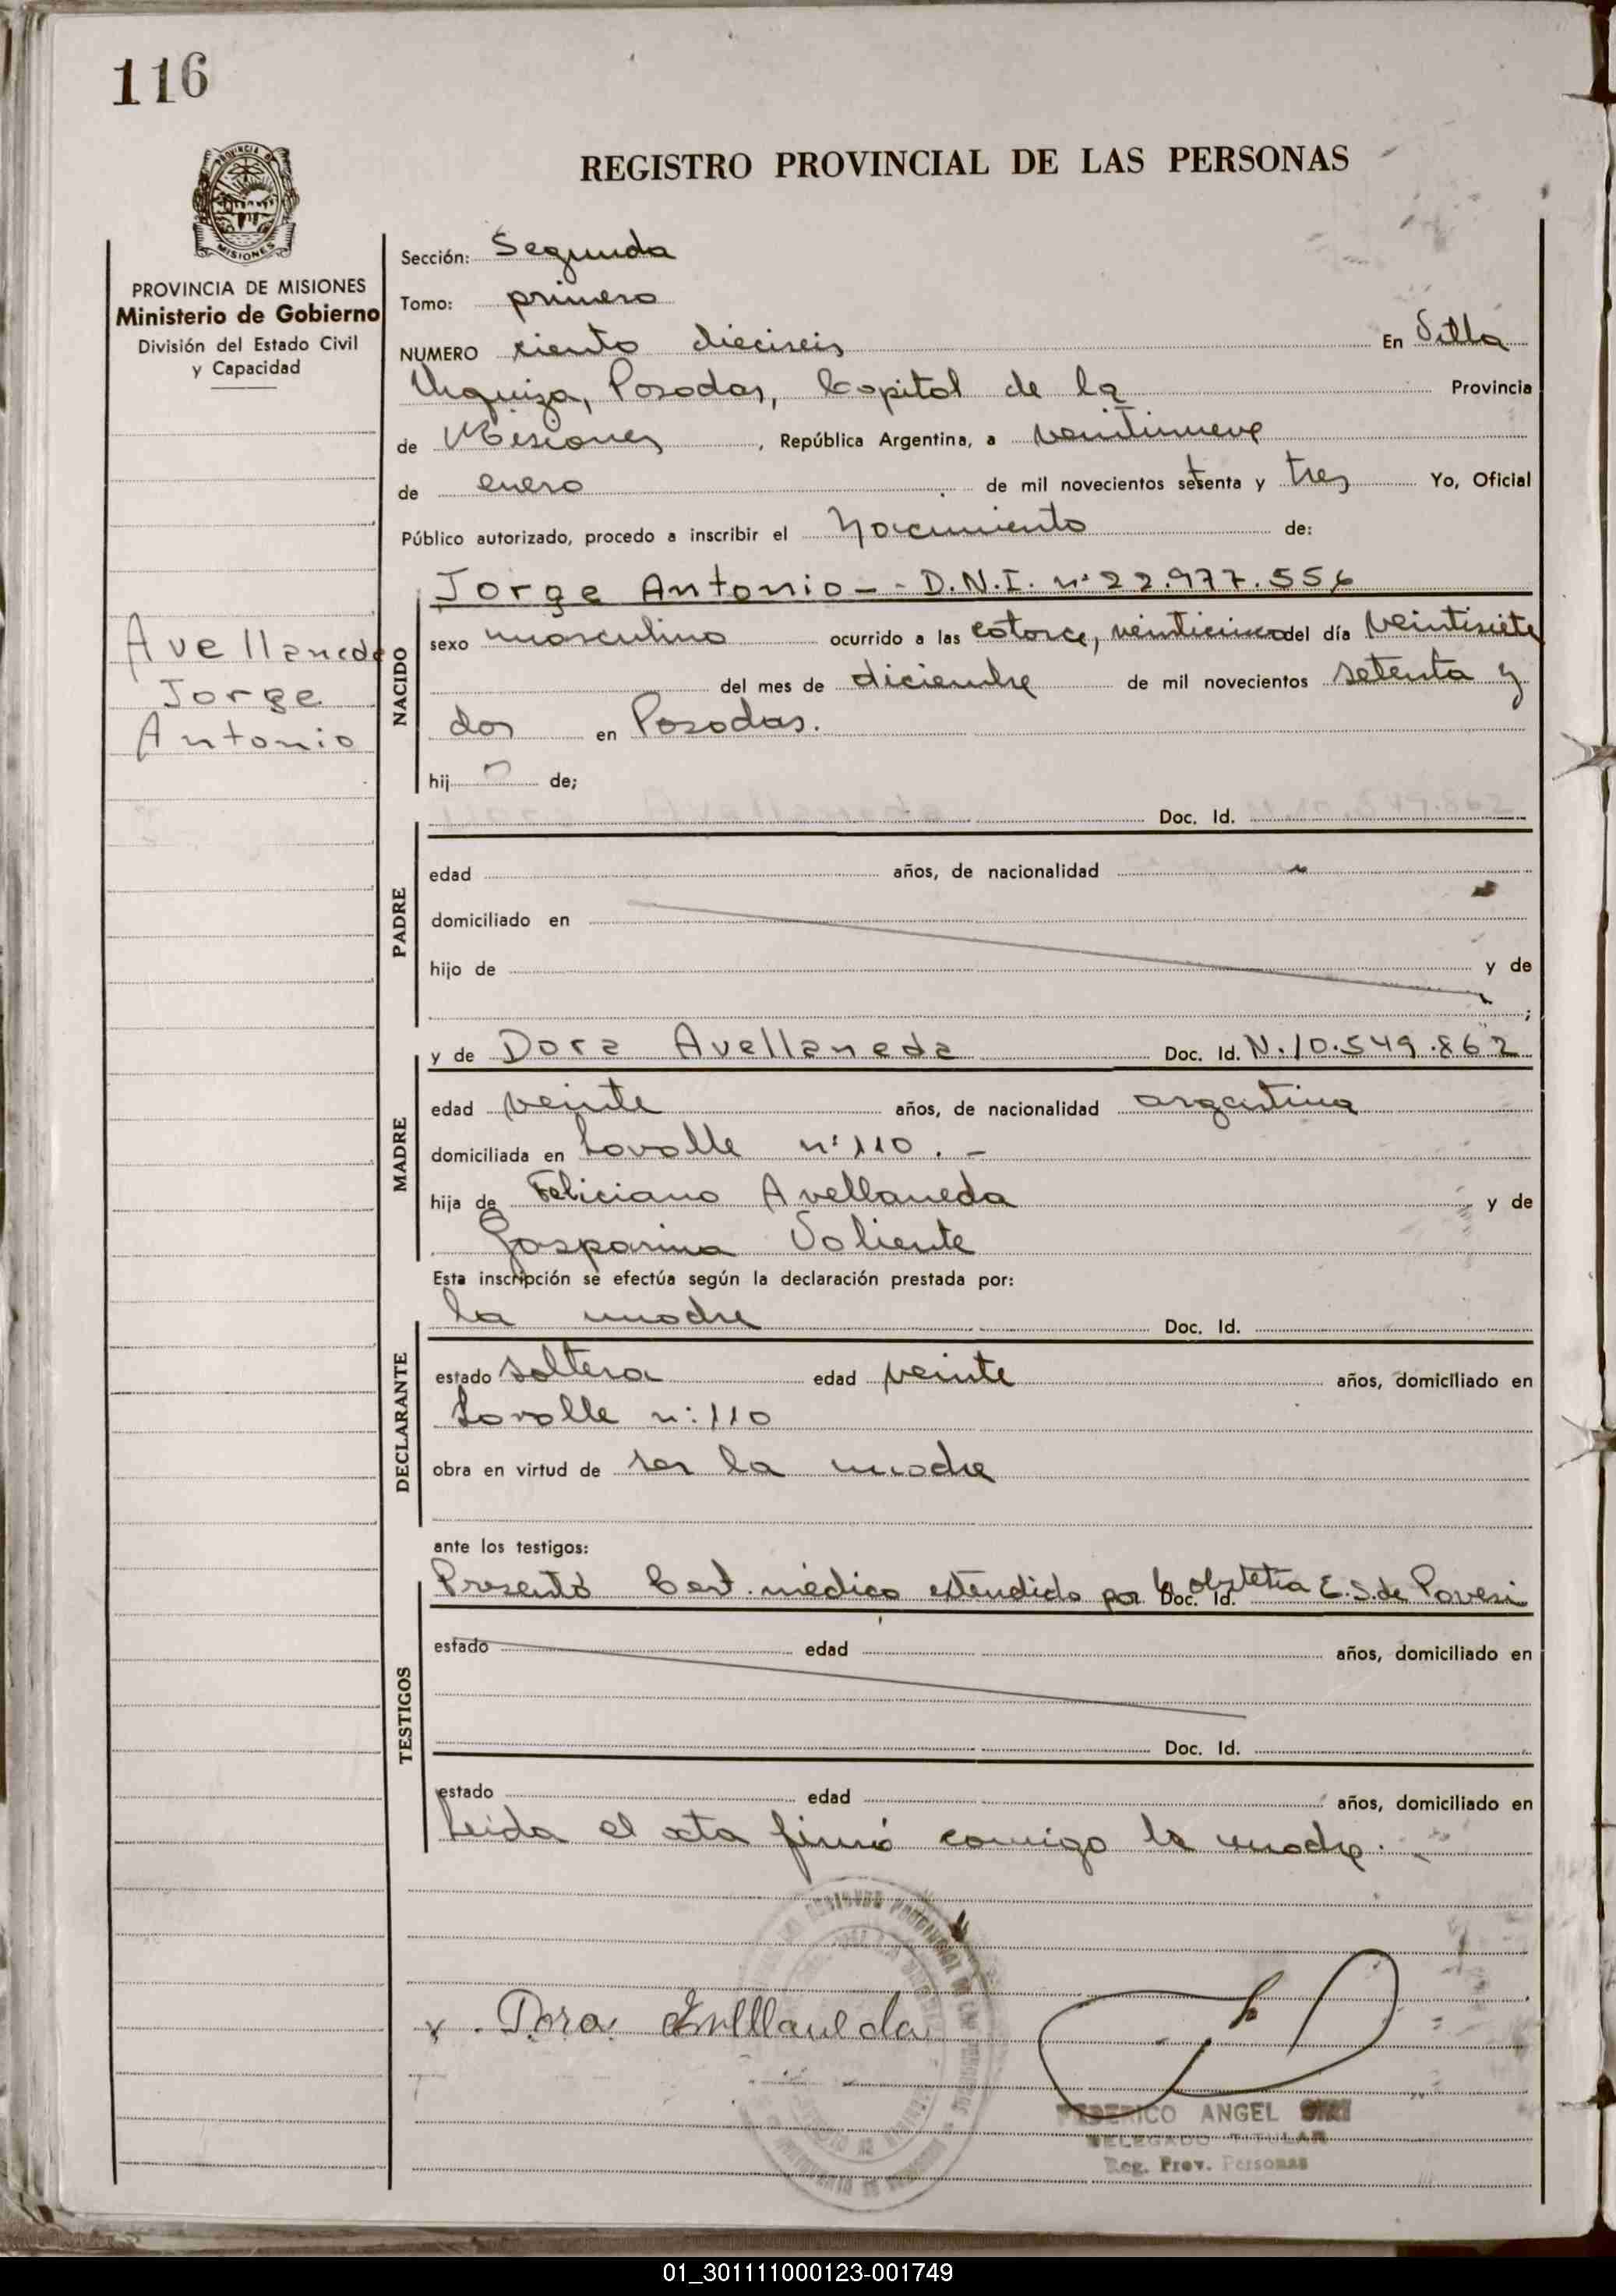 116
REGISTRO PROVINCIAL DE LAS PERSONAS
PROVINCIA DE
MISIONES
PROVINCIA DE MISIONES
Ministerio de Gobierno
División del Estado Civil
y Capacidad
Avellaneda
Jorge
Antonio
Sección: Segunda
Tomo: primero
NUMERO ciento dieciseis En Villa
Urquiza, Posadas, Capital de la Provincia
de Misiones, República Argentina, a veintinueve
de enero de mil novecientos setenta y tres Yo, Oficial
Público autorizado, procedo a inscribir el Nacimiento de:
Jorge Antonio - - D.N.I. nº 22.977.556
NACIDO
sexo masculino ocurrido a las catorce, veinticinco del día veintisiete
del mes de diciembre de mil novecientos setenta y
dos en Posadas.
hij o de;
Doc. Id.
PADRE
edad años, de nacionalidad
domiciliado en
hijo de y de
;
MADRE
y de Dora Avellaneda Doc. Id. N. 10.549.862
edad veinte años, de nacionalidad argentina
domiciliada en Lavalle nº 110. -
hija de Feliciano Avellaneda y de
Gasparina Valiente
Esta inscripción se efectúa según la declaración prestada por:
la madre Doc. Id.
DECLARANTE
estado soltera edad veinte años, domiciliado en
Lavalle nº 110
obra en virtud de ser la madre
ante los testigos:
Presentó Cert. médico extendido por la obstetra E. S. de Povesi
Doc. Id.
TESTIGOS
estado edad años, domiciliado en
Doc. Id.
estado edad años, domiciliado en
Leida el acta firmó conmigo la madre. -
x Dora Avellaneda
FEDERICO ANGEL
DELEGADO TITULAR
Reg. Prov. Personas
01_301111000123-001749